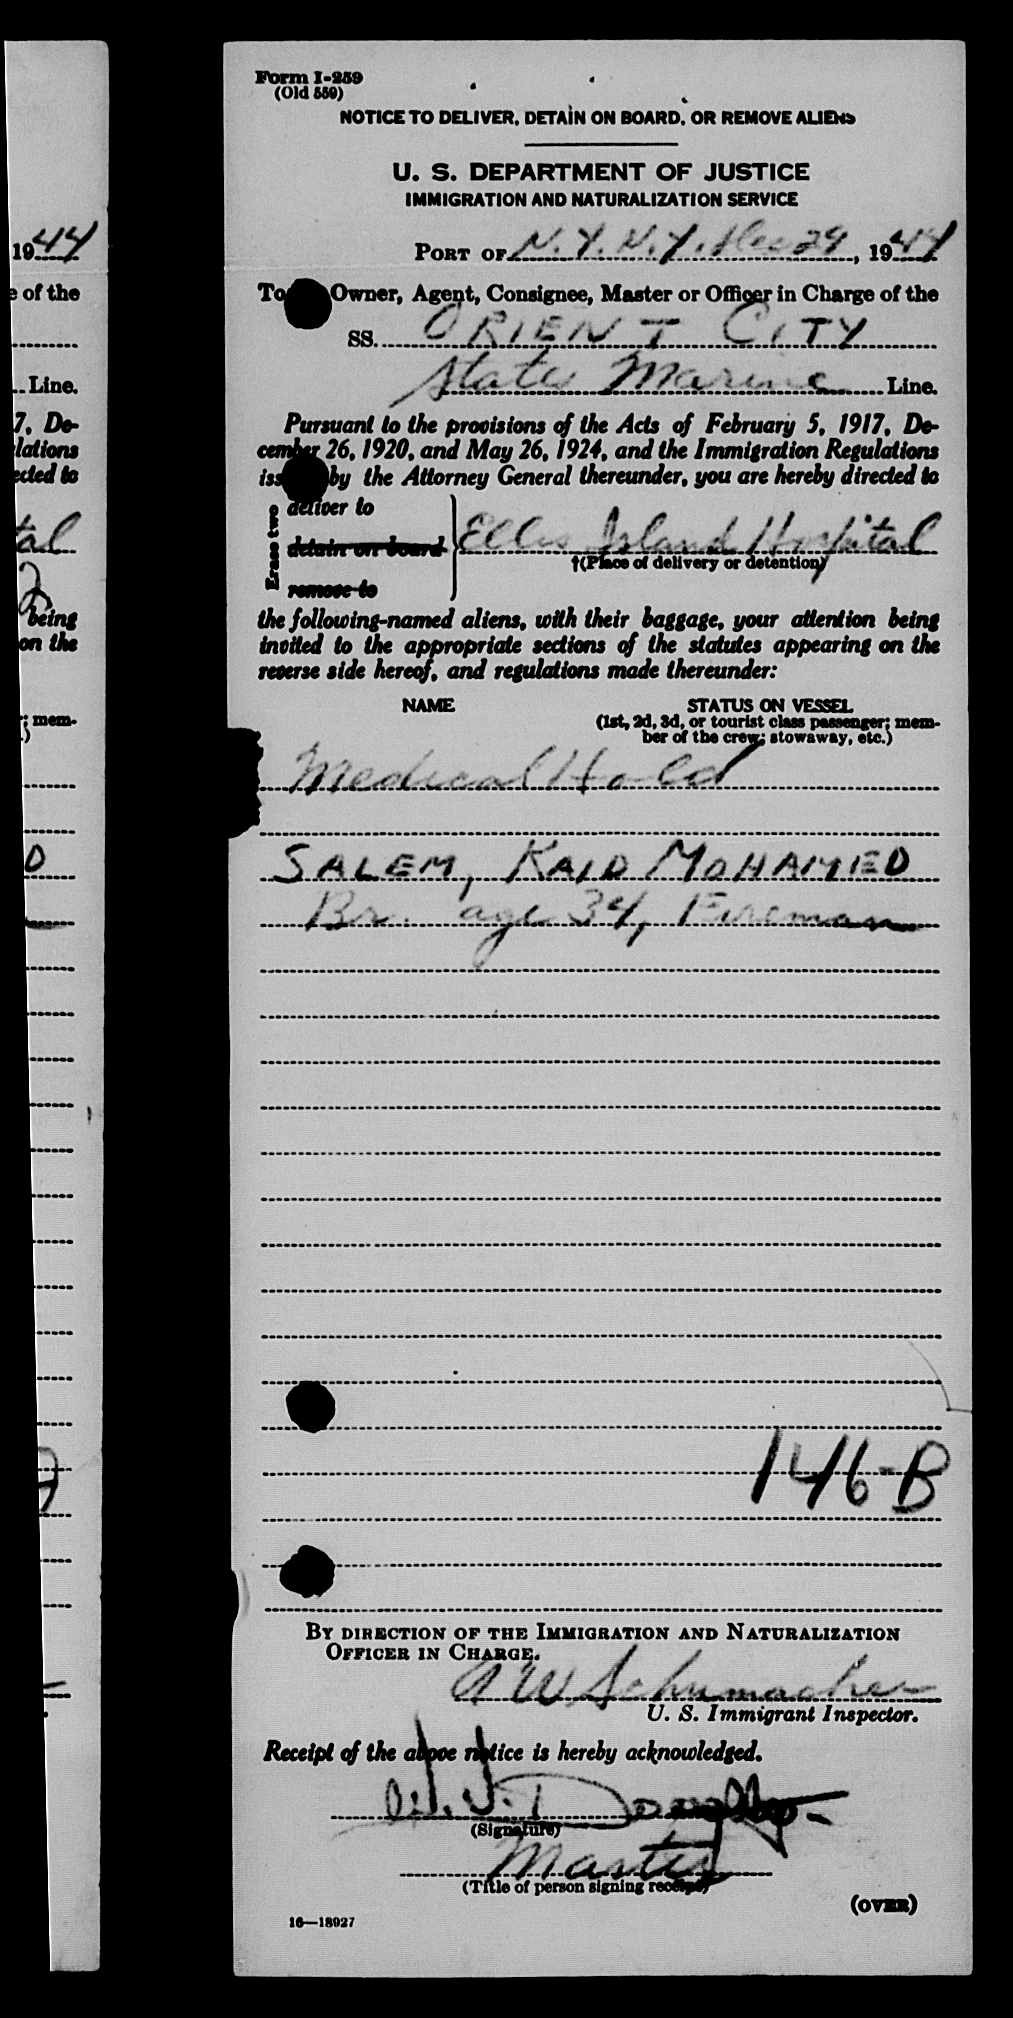 1944
e of the
Line.
7, De-
lations
ected to
tal
being
on the
; mem-
)
D
Form I-259
(Old 559)
NOTICE TO DELIVER, DETAIN ON BOARD, OR REMOVE ALIENS
U. S. DEPARTMENT OF JUSTICE
IMMIGRATION AND NATURALIZATION SERVICE
PORT OF N.Y. N.Y. Dec 29, 1944
To Owner, Agent, Consignee, Master or Officer in Charge of the
SS. ORIENT CITY
States Marine Line.
Pursuant to the provisions of the Acts of February 5, 1917, De-
cember 26, 1920, and May 26, 1924, and the Immigration Regulations
iss by the Attorney General thereunder, you are hereby directed to
Erase two
deliver to
detain on board
remove to
Ellis Island Hospital
†(Place of delivery or detention)
the following-named aliens, with their baggage, your attention being
invited to the appropriate sections of the statutes appearing on the
reverse side hereof, and regulations made thereunder:
NAME STATUS ON VESSEL
(1st, 2d, 3d, or tourist class passenger; mem-
ber of the crew; stowaway, etc.)
Medical Hold
SALEM, KAID MOHAMED
Br. age 34, Fireman
146-B
BY DIRECTION OF THE IMMIGRATION AND NATURALIZATION
OFFICER IN CHARGE.
A W Schumacher
U. S. Immigrant Inspector.
Receipt of the above notice is hereby acknowledged.
(Signature)
Master
(Title of person signing receipt)
(OVER)
16—18927